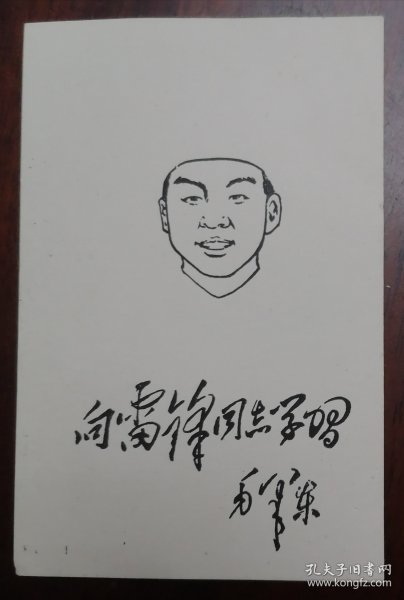 向雷锋同志学习
毛泽东
孔夫子旧书网
www.kongfz.com